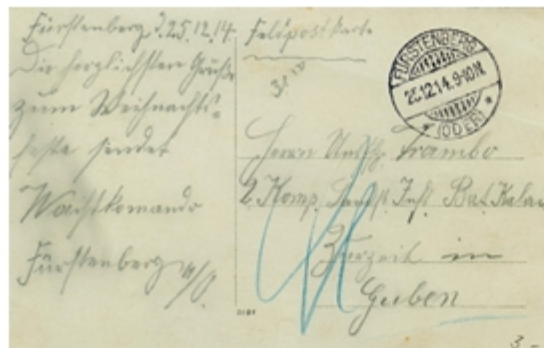 Fürstenberg, 25.12.14.
Die herzlichsten Grüße
zum Weihnachts-
feste sendet
Wachtkomando
Fürstenberg a/O.
Feldpostkarte
FÜRSTENBERG
25.12.14.9-10V.
* (ODER) *
Herrn Trambo
2. Komp. Landst. Inft. Bat. Kalau
Zurzeit in
Guben
3 -